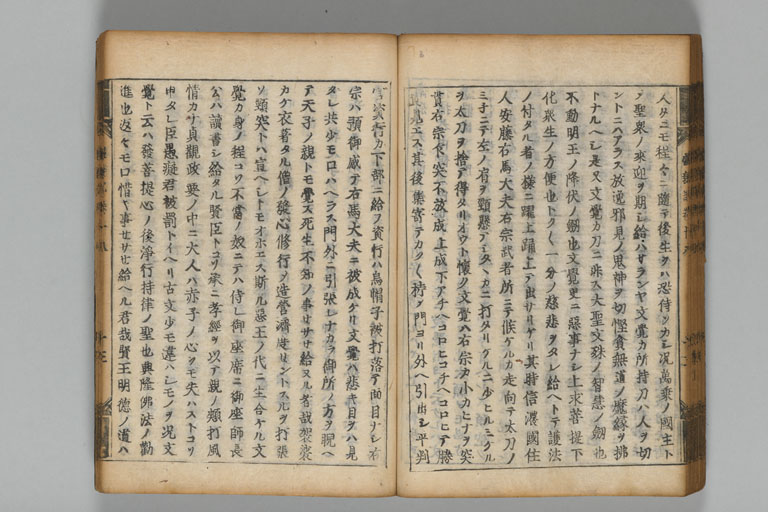 人タニモ程々ニ隨テ後生ヲハ恐侍ソカシ况萬乗ノ國主ト
聖衆ノ來迎ヲ期シ給ハサランヤ文覺カ所持刀ハ人ヲ切
ントニハアラス放逸邪見ノ鬼神ヲ切慳貪無道ノ魔縁ヲ拂
トナルヘシ是又文覺カ刀ニ非ス大聖文殊ノ智慧ノ劔也
不動明王ノ降伏ノ劔也文覺更ニ惡事ナシ上求菩提下
化衆生ノ方便也トク〱一分ノ慈悲ヲタレ給ヘトテ護法
ノ付タル者ノ樣ニ躍上踊上テ出サリケリ其時信濃國住
人安藤右馬大夫右宗武者所ニテ候ケルカ走向テ太刀ノ
ミネニテ左ノ肩ヲ頸懸テシタヽカニ打タリケルニ少ヒルミケル
ヲ太刀ヲ捨テ得タリオウト懷ク文覺ハ右宗カ小カヒナヲ突
貫右宗突不放成上成下アチヘコロヒコチヘコロヒテ勝
負見エス其後集寄テカタク搦テ門ヨリ外ヘ引出シ平判
官資行カ下部ニ給フ資行ハ烏帽子被打落テ面目ナシ右
宗ハ預御感テ右馬大夫ニ被成ケリ文覺ハ悲キ目ヲハ見
タレ共少モロハヘラス門外ニ引張レナカラ御所ノ方ヲ睨ヘ
テ天子ノ親トモ覺ス死生不知ノ事セサセ給ヌル者哉袈裟
カケ衣著タル僧ノ發心修行シ造營濟度セントスルヲ打張
ソ頸突トハ宣ヘシトモオホエス斯ル惡王ノ代ニ生合ケル文
覺カ身ノ程コソ不當ノ奴ニテハ侍レ御座席ニ御座師長
公ハ讀書シ給タル賢臣トコソ承ニ孝經ヲ以テ親ノ頬打風
情カナ貞觀政要ノ中ニ大人ハ赤子ノ心ヲモ失ハストコソ
申タレ臣愚癡君被罰トイヘリ古文少モ違ハシモノヲ况文
覺ト云ハ發菩提心ノ後淨行持律ノ聖也興隆佛法ノ勸
進也返々モ口惜キ事セサセ給ヘル君哉賢王明德ノ道ハ